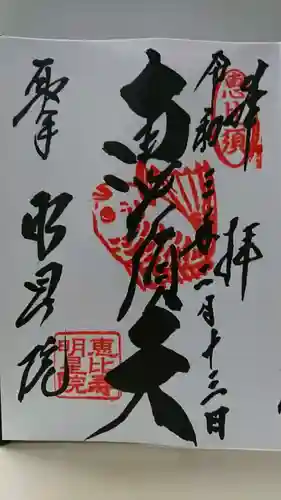 奉拝
恵比須
令和三年二月十三日
恵比須天
明星院
恵比寿
明星院